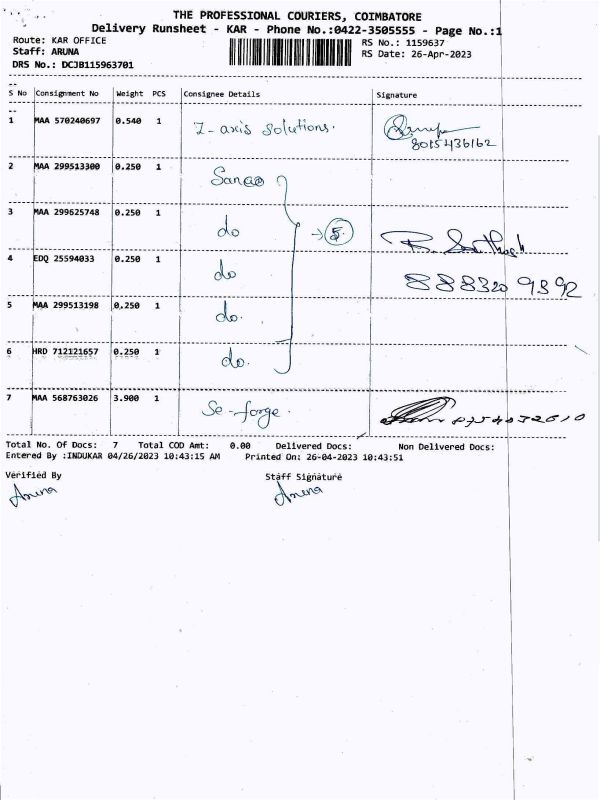 THE PROFESSIONAL COURIERS, COIMBATORE
Delivery Runsheet - KAR - Phone No.:0422-3505555 - Page No.:1
Route: KAR OFFICE RS No.: 1159637
Staff: ARUNA RS Date: 26-Apr-2023
DRS No.: DCJB115963701
S No Consignment No Weight PCS Consignee Details Signature
1 MAA 570240697 0.540 1 Z-axis solutions.
8015436162
2 MAA 299513300 0.250 1
3 MAA 299625748 0.250 1 do → 5.
4 EDQ 25594033 0.250 1 do 888320 9392
5 MAA 299513198 0.250 1 do.
6 HRD 712121657 0.250 1 do.
7 MAA 568763026 3.900 1 Se-forge.
Total No. Of Docs: 7 Total COD Amt: 0.00 Delivered Docs: Non Delivered Docs:
Entered By :INDUKAR 04/26/2023 10:43:15 AM Printed On: 26-04-2023 10:43:51
Verified By Staff Signature
Aruna Aruna